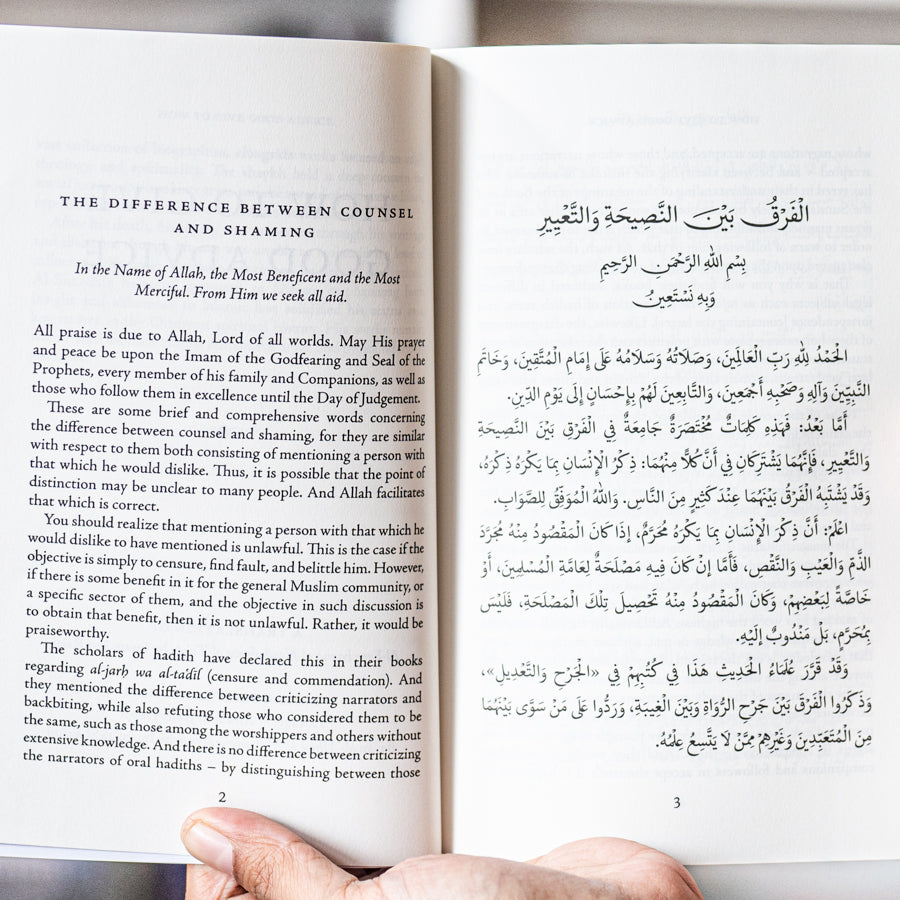 THE DIFFERENCE BETWEEN COUNSEL
AND SHAMING
In the Name of Allah, the Most Beneficent and the Most
Merciful. From Him we seek all aid.
All praise is due to Allah, Lord of all worlds. May His prayer
and peace be upon the Imam of the Godfearing and Seal of the
Prophets, every member of his family and Companions, as well as
those who follow them in excellence until the Day of Judgement.
These are some brief and comprehensive words concerning
the difference between counsel and shaming, for they are similar
with respect to them both consisting of mentioning a person with
that which he would dislike. Thus, it is possible that the point of
distinction may be unclear to many people. And Allah facilitates
that which is correct.
You should realize that mentioning a person with that which he
would dislike to have mentioned is unlawful. This is the case if the
objective is simply to censure, find fault, and belittle him. However,
if there is some benefit in it for the general Muslim community, or
a specific sector of them, and the objective in such discussion is
to obtain that benefit, then it is not unlawful. Rather, it would be
praiseworthy.
The scholars of hadith have declared this in their books
regarding al-jarḥ wa al-ta'dīl (censure and commendation). And
they mentioned the difference between criticizing narrators and
backbiting, while also refuting those who considered them to be
the same, such as those among the worshippers and others without
extensive knowledge. And there is no difference between criticizing
the narrators of oral hadiths – by distinguishing between those
2
الْفَرْقُ بَيْنَ النَّصِيحَةِ وَالتَّعْيِيرِ
بِسْمِ اللهِ الرَّحْمَنِ الرَّحِيمِ
وَبِهِ نَسْتَعِينُ
الْحَمْدُ لِلهِ رَبِّ الْعَالَمِينَ، وَصَلَاتُهُ وَسَلَامُهُ عَلَى إِمَامِ الْمُتَّقِينَ، وَخَاتَمِ
النَّبِيِّينَ وَآلِهِ وَصَحْبِهِ أَجْمَعِينَ، وَالتَّابِعِينَ لَهُمْ بِإِحْسَانٍ إِلَى يَوْمِ الدِّينِ.
أَمَّا بَعْدُ: فَهَذِهِ كَلِمَاتٌ مُخْتَصَرَةٌ جَامِعَةٌ فِي الْفَرْقِ بَيْنَ النَّصِيحَةِ
وَالتَّعْيِيرِ، فَإِنَّهُمَا يَشْتَرِكَانِ فِي أَنَّ كُلًّا مِنْهُمَا: ذِكْرُ الْإِنْسَانِ بِمَا يَكْرَهُ ذِكْرَهُ،
وَقَدْ يَشْتَبِهُ الْفَرْقُ بَيْنَهُمَا عِنْدَ كَثِيرٍ مِنَ النَّاسِ. وَاللهُ الْمُوَفِّقُ لِلصَّوَابِ.
اعْلَمْ: أَنَّ ذِكْرَ الْإِنْسَانِ بِمَا يَكْرَهُ مُحَرَّمٌ، إِذَا كَانَ الْمَقْصُودُ مِنْهُ مُجَرَّدَ
الذَّمِّ وَالْعَيْبِ وَالنَّقْصِ، فَأَمَّا إِنْ كَانَ فِيهِ مَصْلَحَةٌ لِعَامَّةِ الْمُسْلِمِينَ، أَوْ
خَاصَّةً لِبَعْضِهِمْ، وَكَانَ الْمَقْصُودُ مِنْهُ تَحْصِيلَ تِلْكَ الْمَصْلَحَةِ، فَلَيْسَ
بِمُحَرَّمٍ، بَلْ مَنْدُوبٌ إِلَيْهِ.
وَقَدْ قَرَّرَ عُلَمَاءُ الْحَدِيثِ هَذَا فِي كُتُبِهِمْ فِي «الْجَرْحِ وَالتَّعْدِيلِ»،
وَذَكَرُوا الْفَرْقَ بَيْنَ جَرْحِ الرُّوَاةِ وَبَيْنَ الْغِيبَةِ، وَرَدُّوا عَلَى مَنْ سَوَّى بَيْنَهُمَا
مِنَ الْمُتَعَبِّدِينَ وَغَيْرِهِمْ مِمَّنْ لَا يَتَّسِعُ عِلْمُهُ.
3